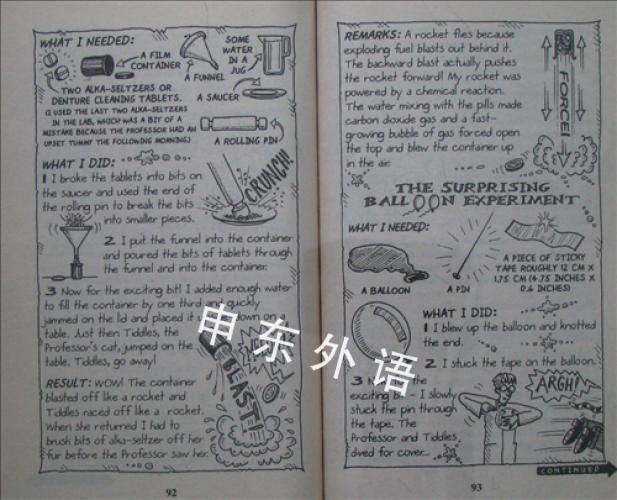 WHAT I NEEDED:
A FILM
CONTAINER
A FUNNEL
SOME
WATER
IN A
JUG
TWO ALKA-SELTZERS OR
DENTURE CLEANING TABLETS.
(I USED THE LAST TWO ALKA-SELTZERS
IN THE LAB, WHICH WAS A BIT OF A
MISTAKE BECAUSE THE PROFESSOR HAD AN
UPSET TUMMY THE FOLLOWING MORNING.)
A SAUCER
A ROLLING PIN
WHAT I DID:
1 I broke the tablets into bits on
the saucer and used the end of
the rolling pin to break the bits
into smaller pieces.
CRUNCH!!
2. I put the funnel into the container
and poured the bits of tablets through
the funnel and into the container.
3 Now for the exciting bit! I added enough water
to fill the container by one third and quickly
jammed on the lid and placed it down on a
table. Just then Tiddles, the
Professor's cat, jumped on the
table. Tiddles, go away!
RESULT: WOW! The container
blasted off like a rocket and
Tiddles raced off like a rocket.
When she returned I had to
brush bits of alka-seltzer off her
fur before the Professor saw her.
BLAST!
92
REMARKS: A rocket flies because
exploding fuel blasts out behind it.
The backward blast actually pushes
the rocket forward! My rocket was
powered by a chemical reaction.
The water mixing with the pills made
carbon dioxide gas and a fast-
growing bubble of gas forced open
the top and blew the container up
in the air.
FORCE!
THE SURPRISING
BALLOON EXPERIMENT
WHAT I NEEDED:
A BALLOON
A PIN
A PIECE OF STICKY
TAPE ROUGHLY 12 CM X
1.75 CM (4.75 INCHES X
0.6 INCHES)
WHAT I DID:
1 I blew up the balloon and knotted
the end.
2 I stuck the tape on the balloon.
3 the
exciting - I slowly
stuck the pin through
the tape. The
Professor and Tiddles
dived for cover...
ARGH!
CONTINUED
93
申东外语